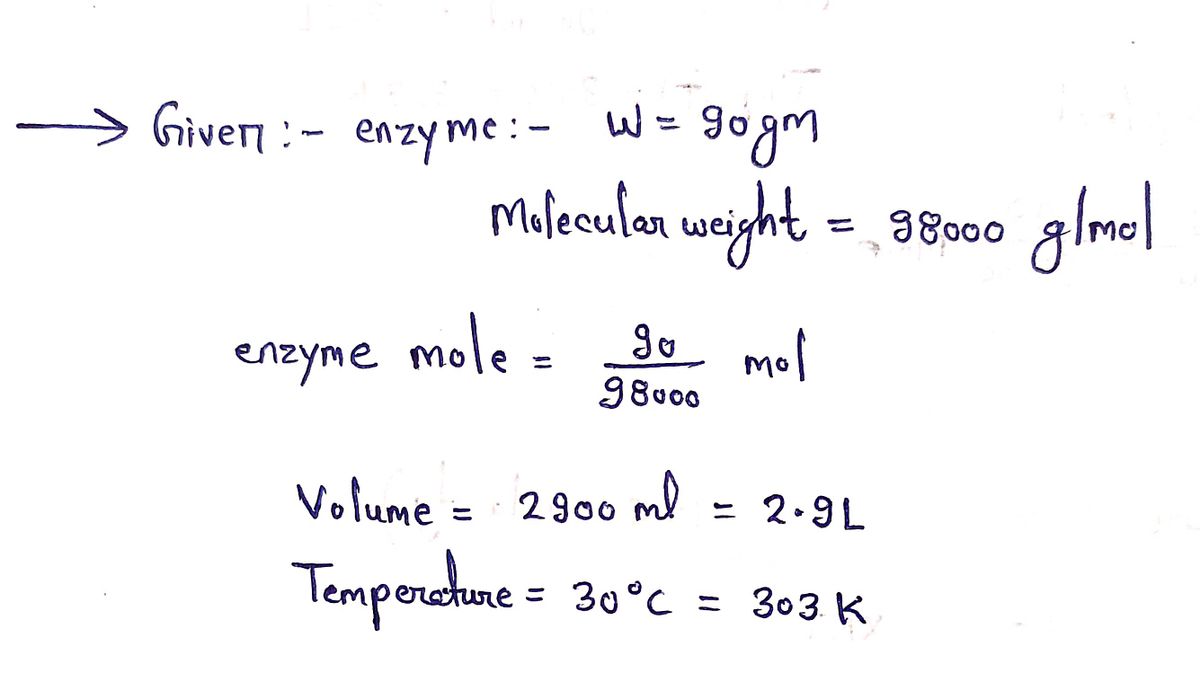 → Given :- enzyme :- W = 90 gm
Molecular weight = 98000 g/mol
enzyme mole = 90/98000 mol
Volume = 2900 ml = 2.9L
Temperature = 30°C = 303 K